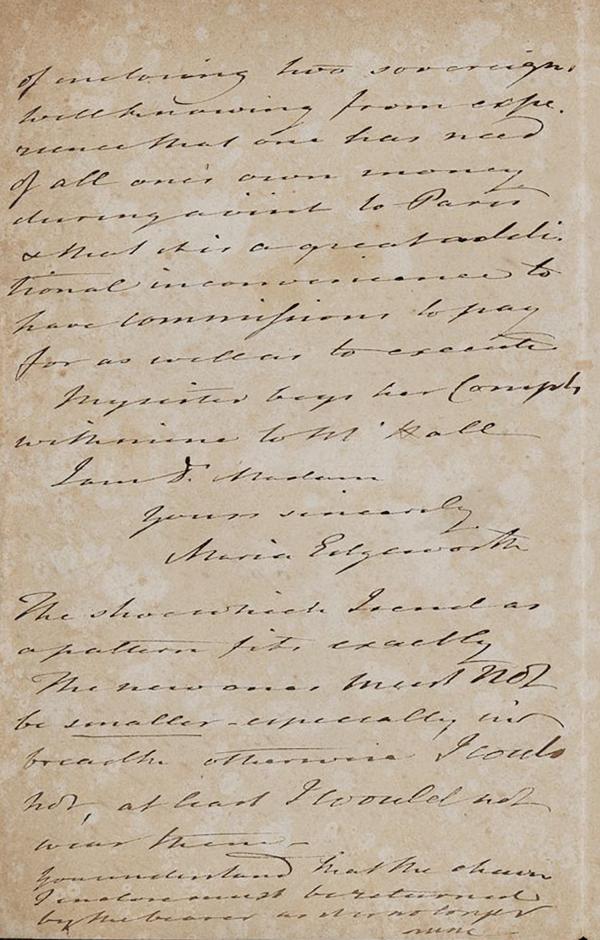 of enclosing two sovereigns
well knowing from expe-
rience that one has need
of all one's own money
during a visit to Paris
& that it is a great addi-
tional inconvenience to
have commissions to pay
for as well as to execute
My sister begs her Compts
with mine to Mr Hall
I am Dr. Madam
yours sincerely
Maria Edgeworth
The shoe which I send as
a pattern fits exactly
The new ones must not
be smaller - especially in
breadth otherwise I could
not, at least I would not
wear them -
You understand that the
I enclose must be returned
by the bearer as it is no longer
mine -